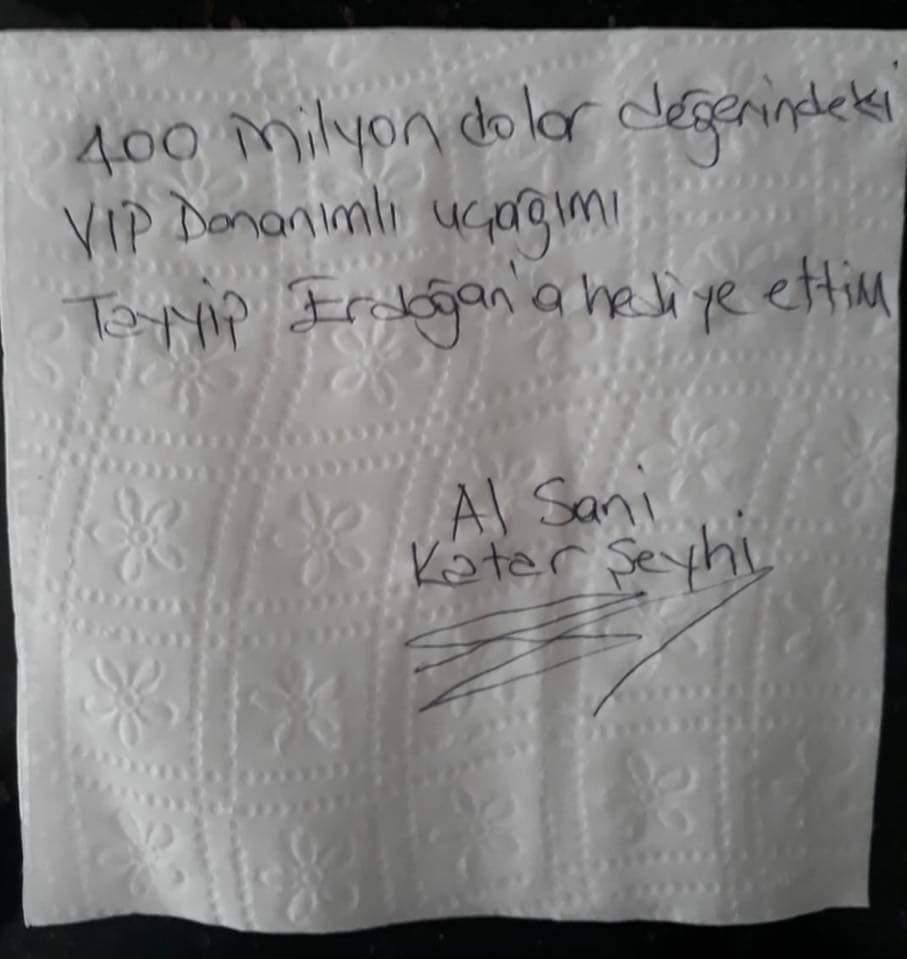 400 milyon dolar değerindeki
VIP Donanımlı uçağımı
Tayyip Erdoğan'a hediye ettim
Al Sani
Katar Şeyhi